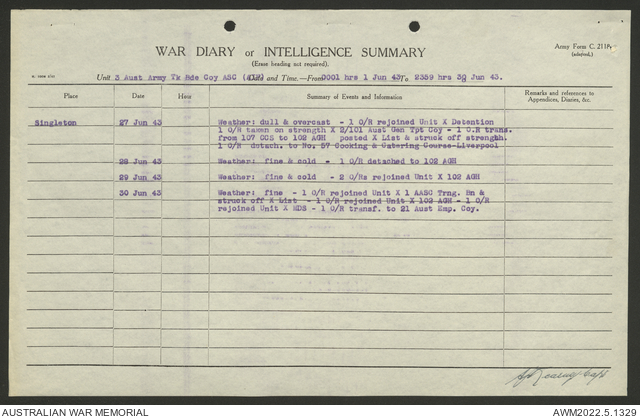 Army Form C. 2118
WAR DIARY or INTELLIGENCE SUMMARY
(adapted.)
(Erase heading not required).
Unit 3 Aust Army Tk Bde Coy ASC and Time.—From 0001 hrs 1 Jun 43 To 2359 hrs 30 Jun 43.
Place Date Hour Summary of Events and Information Remarks and references to
Appendices, Diaries, &c.
Singleton 27 Jun 43 Weather: dull & overcast - 1 O/R rejoined Unit X Detention
1 O/R taken on strength X 2/101 Aust Gen Tpt Coy - 1 O.R trans.
from 107 CCS to 102 AGH posted X List & struck off strength.
1 O/R detach. to No. 57 Cooking & Catering Course-Liverpool
28 Jun 43 Weather: fine & cold - 1 O/R detached to 102 AGH
29 Jun 43 Weather: fine & cold - 2 O/Rs rejoined Unit X 102 AGH
30 Jun 43 Weather: fine - 1 O/R rejoined Unit X 1 AASC Trng. Bn &
struck off X List - 1 O/R rejoined Unit X 102 AGH - 1 O/R
rejoined Unit X MDS - 1 O/R transf. to 21 Aust Emp. Coy.
Capt
AUSTRALIAN WAR MEMORIAL
AWM2022.5.1329